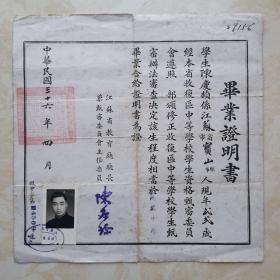 畢業證明書
學生陳慶頫係江蘇省寶山縣人現年弍弍歲
經本省收復區中等學校學生資格甄審委員
會遵照　部頒修正收復區中等學校學生甄
審辦法審查決定該生程度相當於
畢業合給證明書為證
江蘇省教育廳廳長
兼甄審委員會主任委員
陳石珍
中華民國三十六年四月